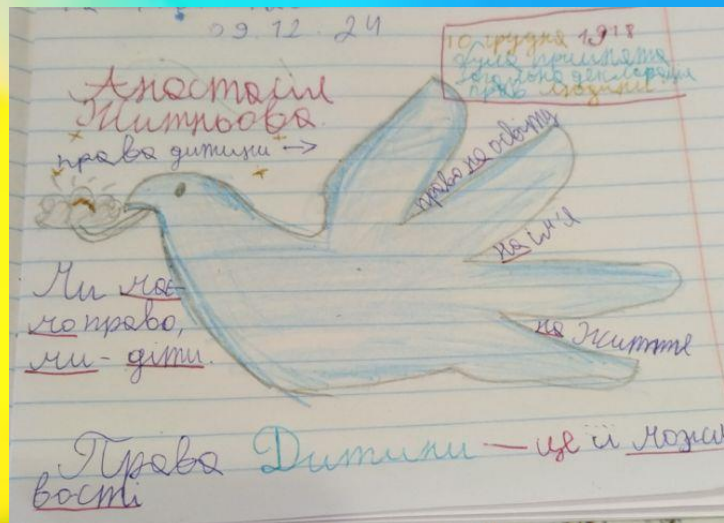 09.12.24
10 грудня 1918
була прийнята
Загальна декларація
прав людини
Анастасія
Житньова
права дитини →
право на освіту
на ім'я
Ми має-
мо право,
ми - діти.
на життя
Права Дитини — це її можли
вості